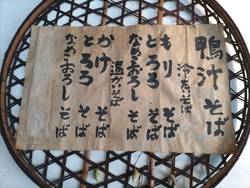 鴨汁そば
冷たいそば
もりそば
とろろそば
なめこおろしそば
温かいそば
かけそば
とろろそば
なめこおろしそば